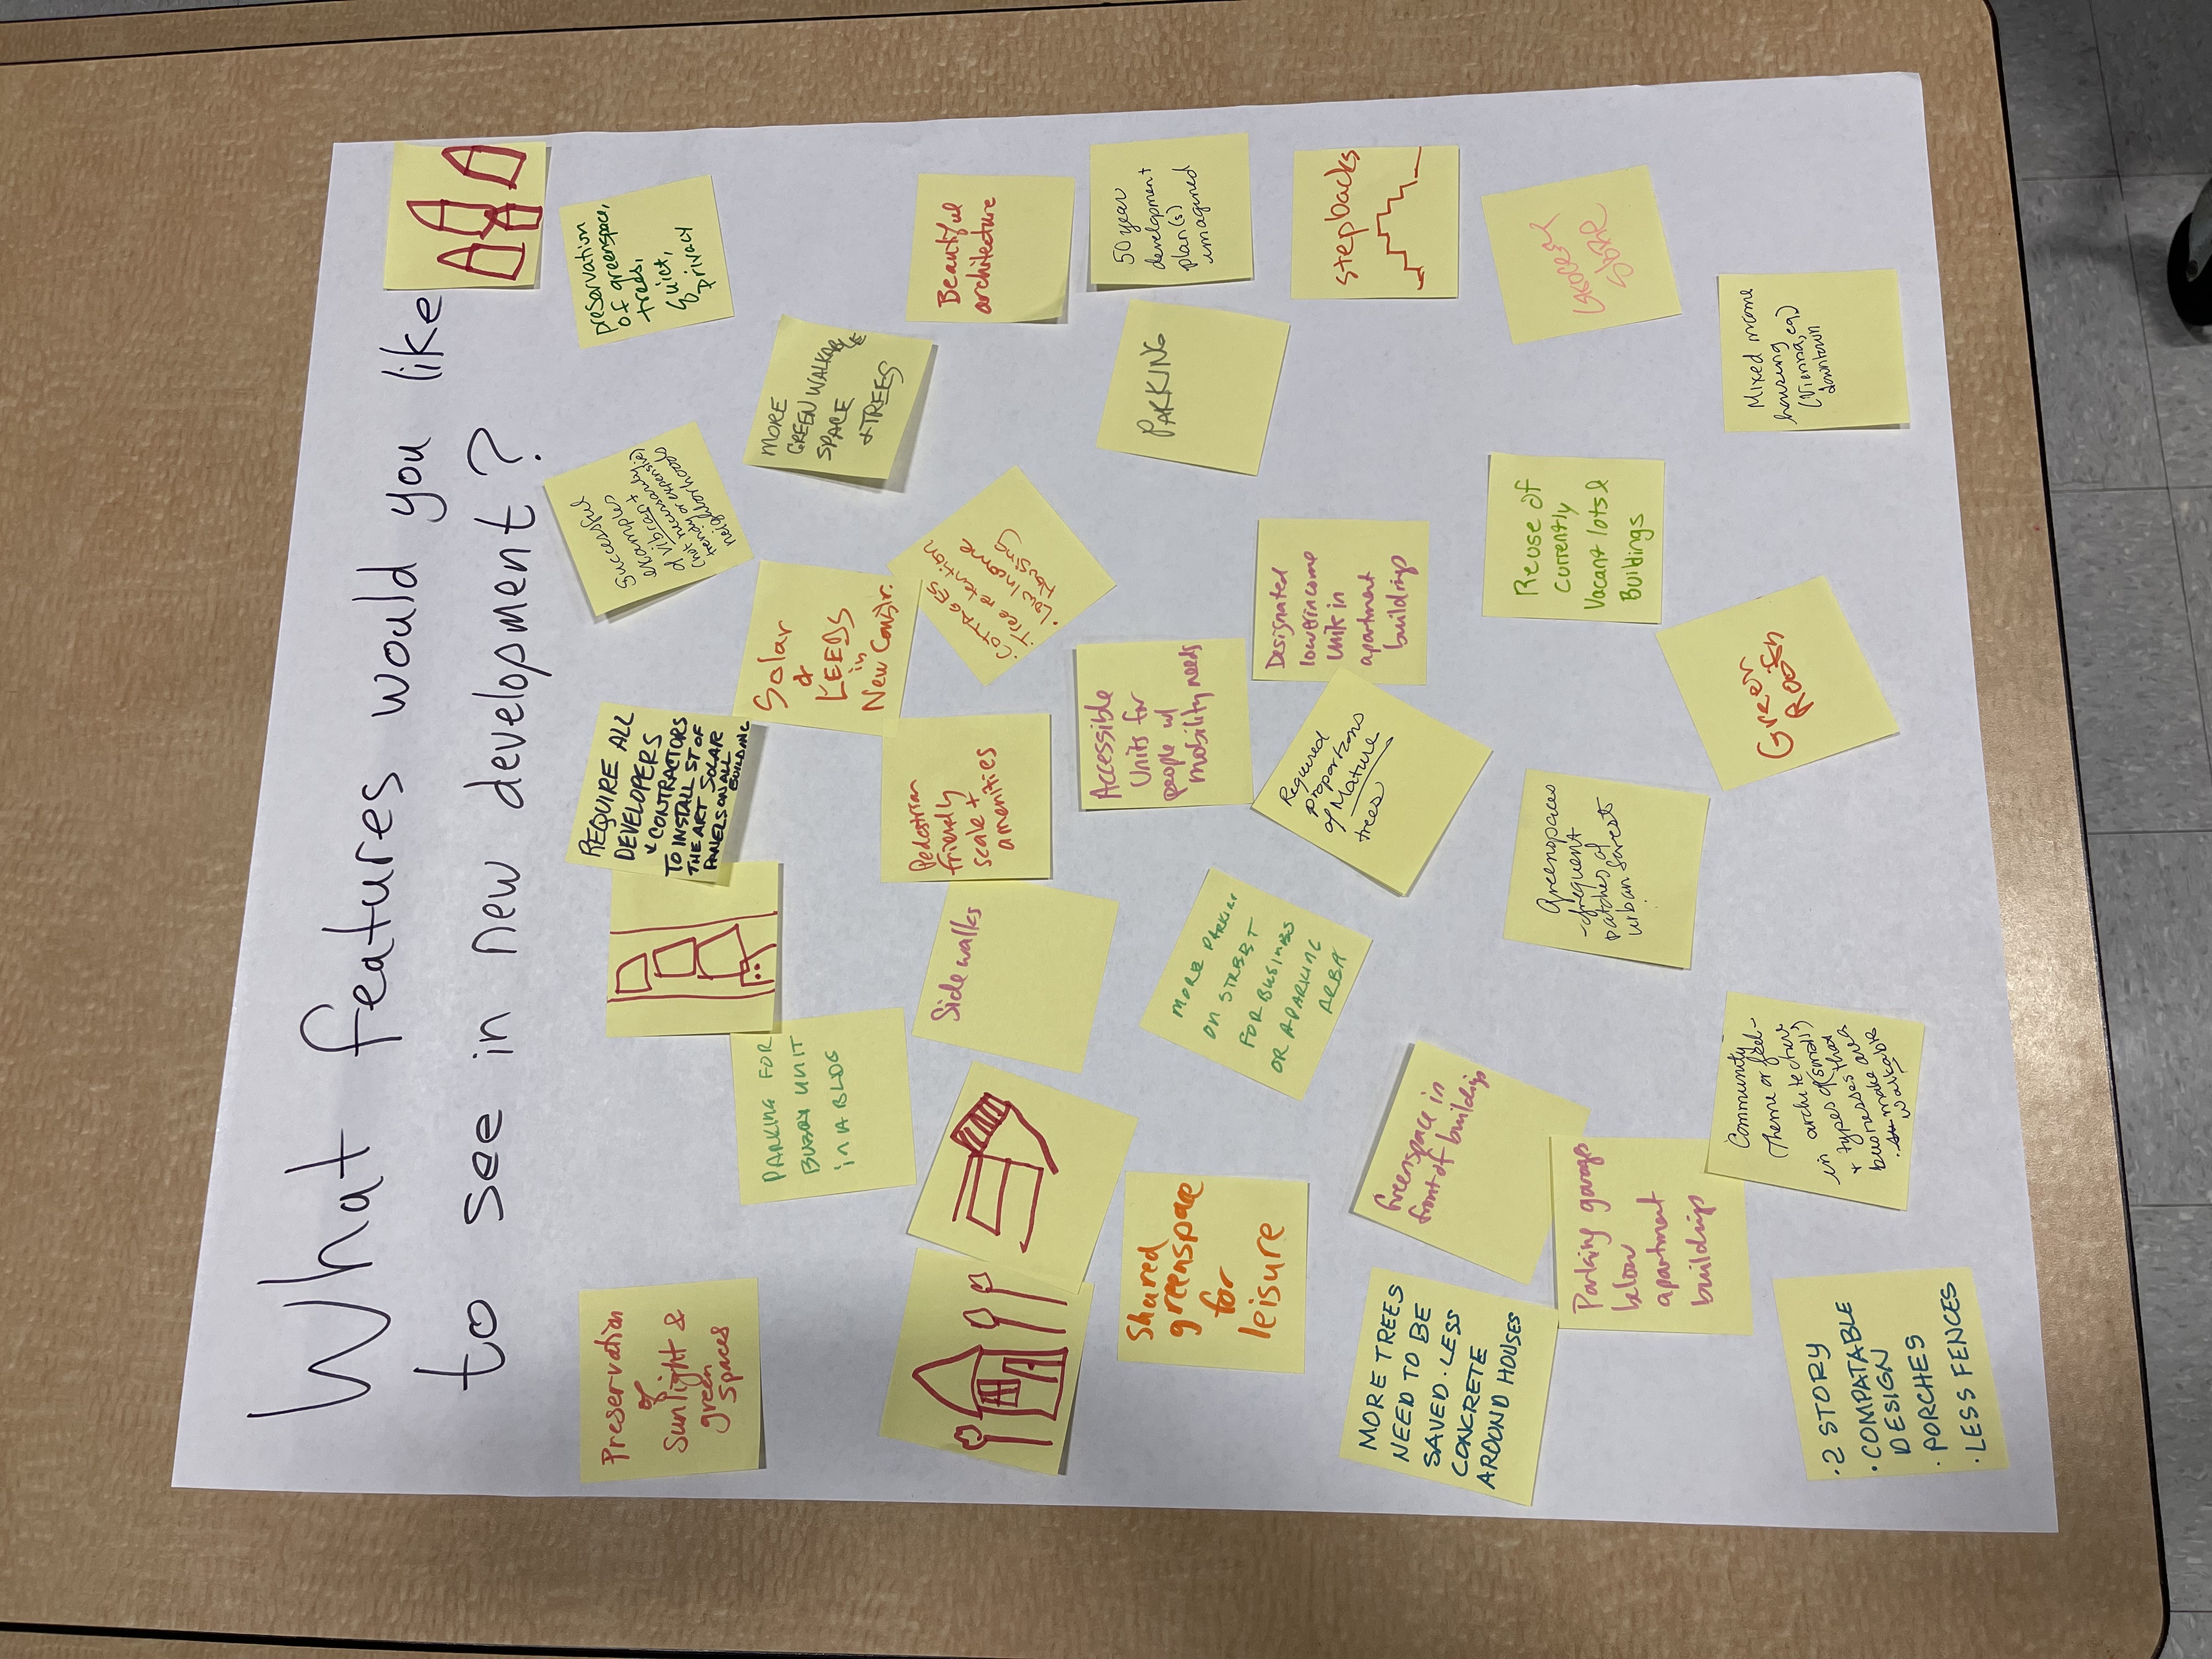 What features would you like
to see in new development?
Preservation
of
Sunlight &
green
spaces
PARKING FOR
UNIT
in A BLDG
REQUIRE ALL
DEVELOPERS
CONTRACTORS
TO INSTALL ST OF
THE ART SOLAR
PANELS ON ALL
BUILDING
Successful
examples
of vibrant
(not necessarily
trendy or expensive)
neighborhoods
preservation
of greenspace,
trees,
quiet,
privacy
Solar
&
LEEDS
in
New Constr.
MORE
GREEN WALKABLE
SPACE
& TREES
Sidewalks
Pedestrian
friendly
scale +
amenities
· COTTAGES
· Tree retention
· Low Income
Housing
Beautiful
architecture
Shared
greenspace
for
leisure
MORE
ON STREET
FOR BUSINESS
OR A PARKING
AREA
Accessible
Units for
people w/
mobility needs
PARKING
50 year
development
plan(s)
imagined
MORE TREES
NEED TO BE
SAVED. LESS
CONCRETE
AROUND HOUSES
Greenspace in
front of buildings
Required
proportions
of Mature
trees
Designated
lower income
units in
apartment
buildings
stepbacks
Parking garage
below
apartment
buildings
Greenspaces
- frequent
patches of
urban forests
Reuse of
currently
Vacant lots &
Buildings
Green
Roofs
· 2 STORY
· COMPATABLE
DESIGN
· PORCHES
· LESS FENCES
Community
Theme or feel -
in architecture
+ types of (small)
businesses that
make area
walkable
Mixed income
housing
(Vienna, eg)
downtown